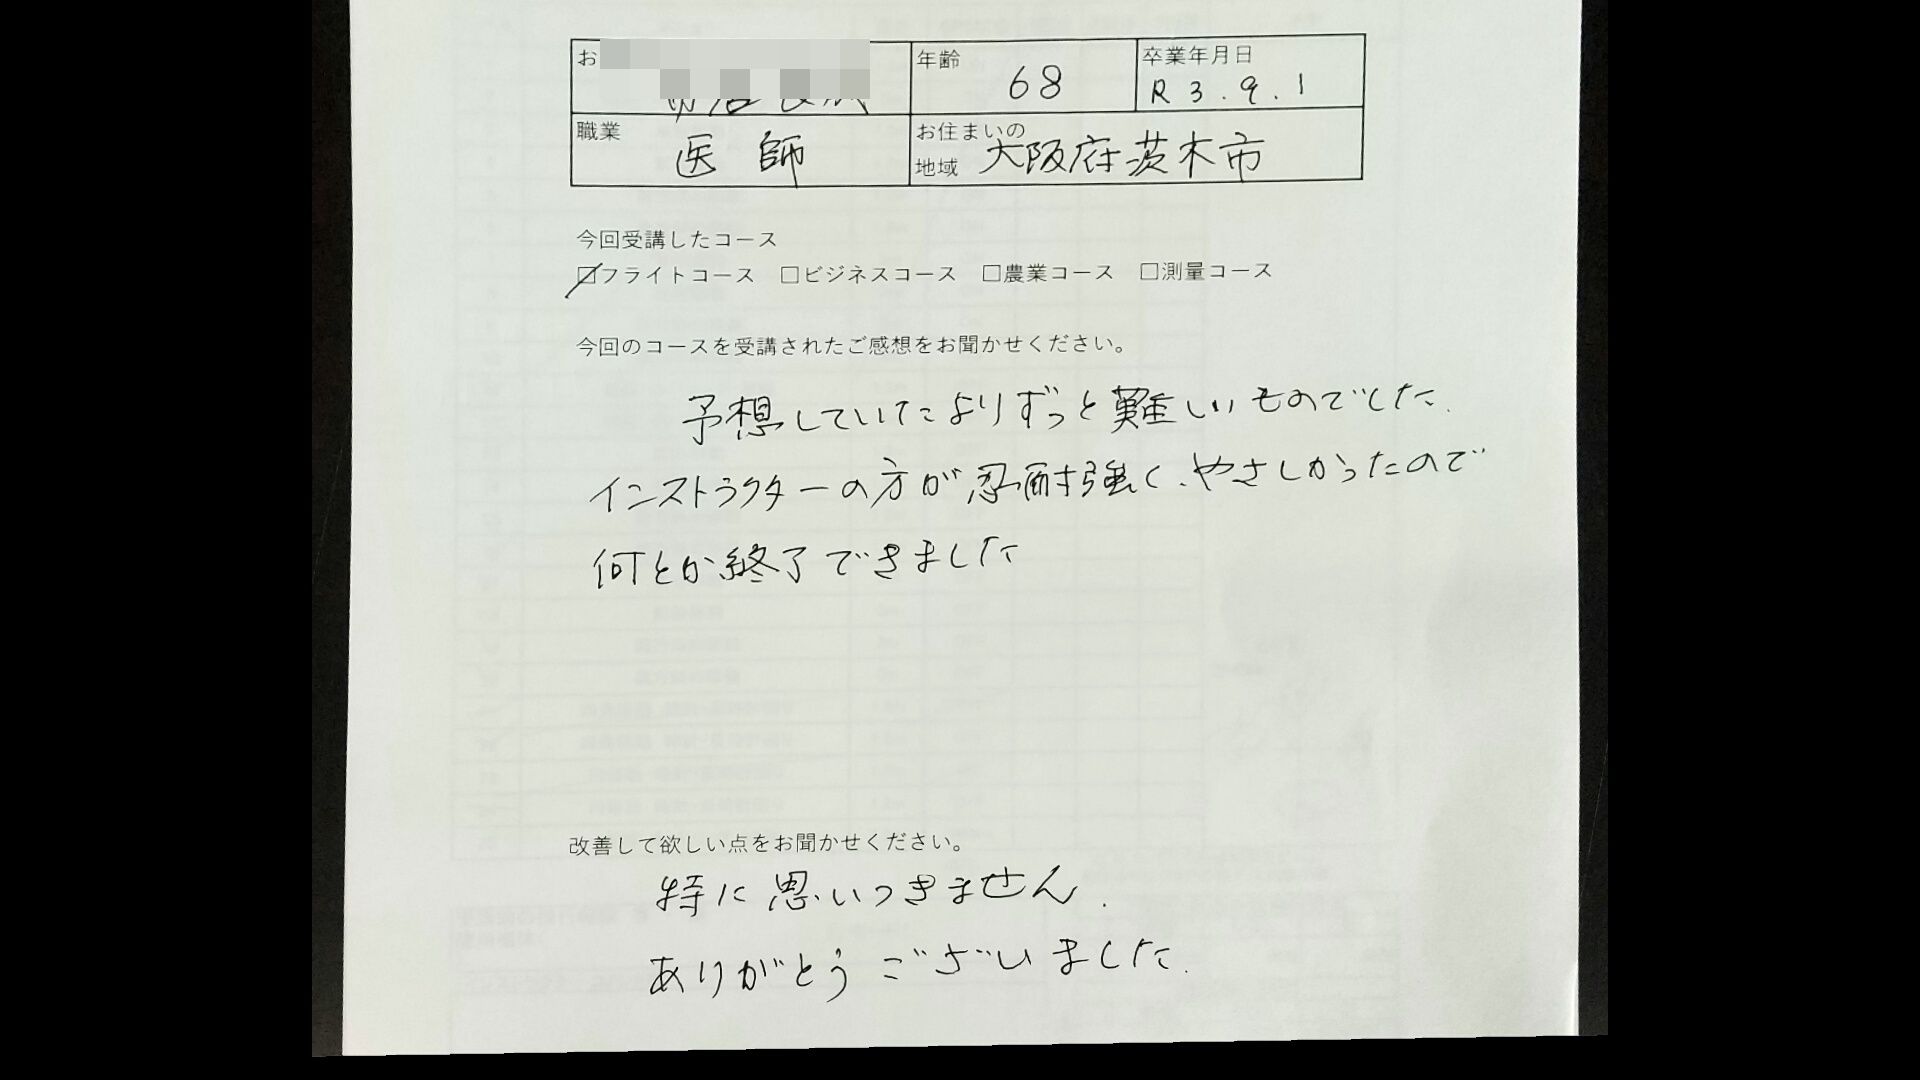 お
年齢
68
卒業年月日
R 3.9.1
職業
医師
お住まいの
地域
大阪府茨木市
今回受講したコース
☑フライトコース □ビジネスコース □農業コース □測量コース
今回のコースを受講されたご感想をお聞かせください。
予想していたよりずっと難しいものでした.
インストラクターの方が忍耐強く、やさしかったので
何とか終了できました
改善して欲しい点をお聞かせください。
特に思いつきません.
ありがとうございました.